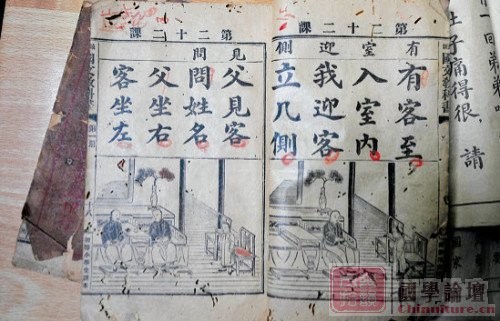 肚子痛得很,請
第二十二課
有
室
迎
側
有客至
入室內
我迎客
立几側
第二十二課
見
問
父見客
問姓名
父坐右
客坐左
國學論壇